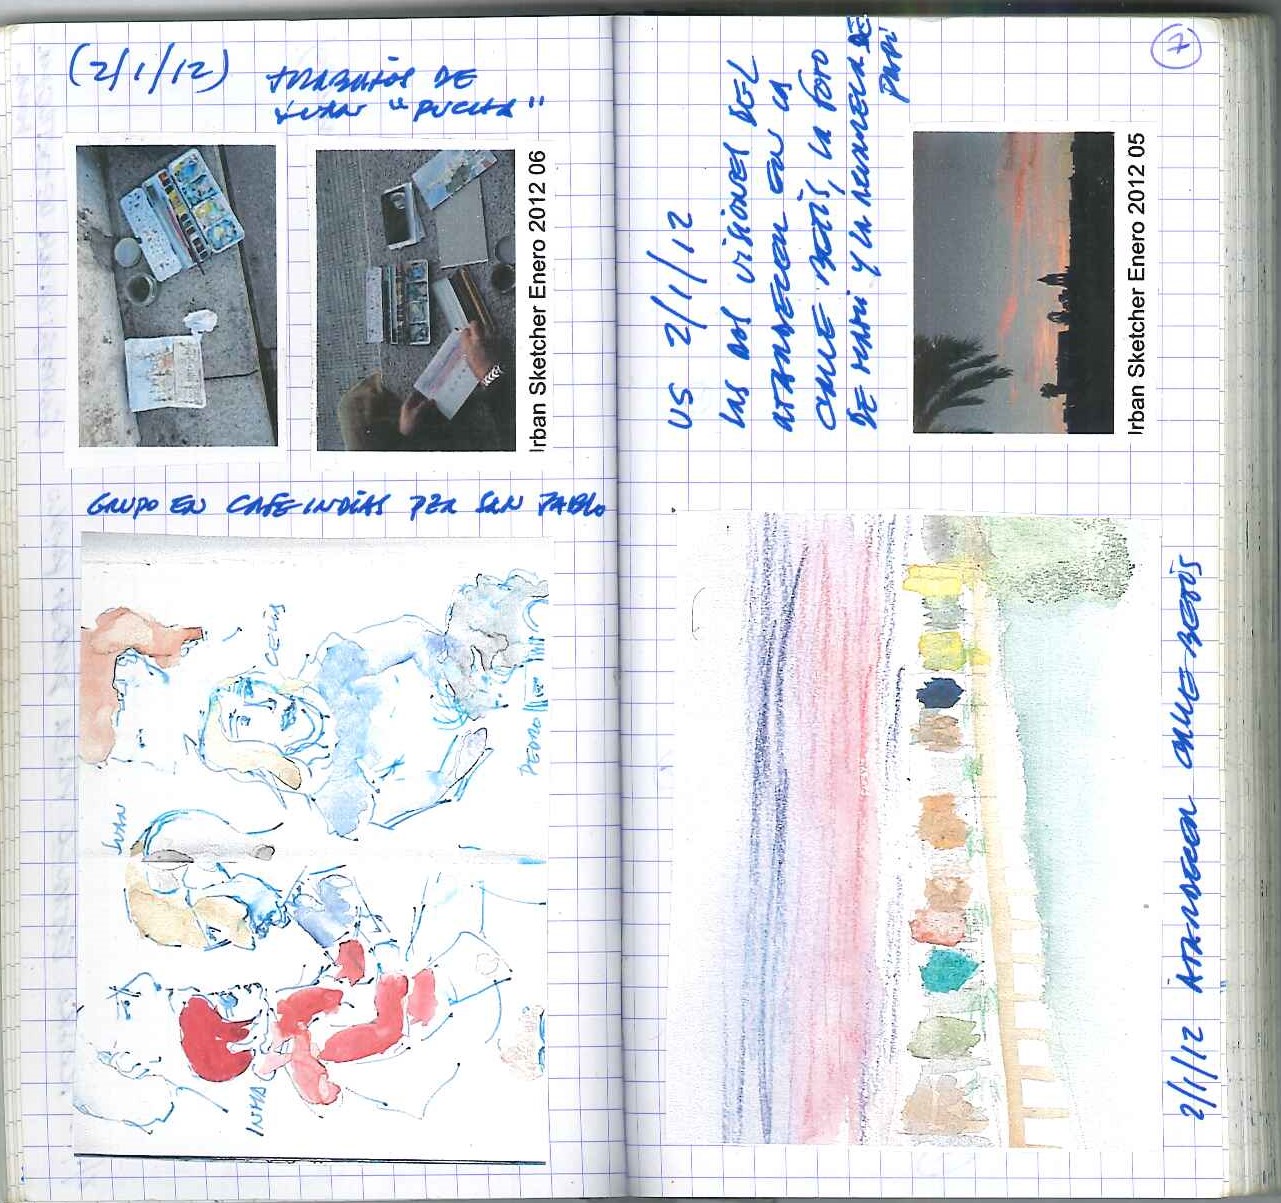 (2/1/12) TRABAJOS DE
JUAN "PUCHA"
Irban Sketcher Enero 2012 06
GRUPO EN CAFE INDIAS PZA SAN PABLO
CELIS
PEDRO
JUAN
INMA
7
US 2/1/12
LAS DOS VISIONES DEL
ATARDECER EN LA
CALLE BETIS, LA FOTO
DE MAMI Y LA ACUARELA DE
PAPI
Irban Sketcher Enero 2012 05
2/1/12 ATARDECER CALLE BETIS